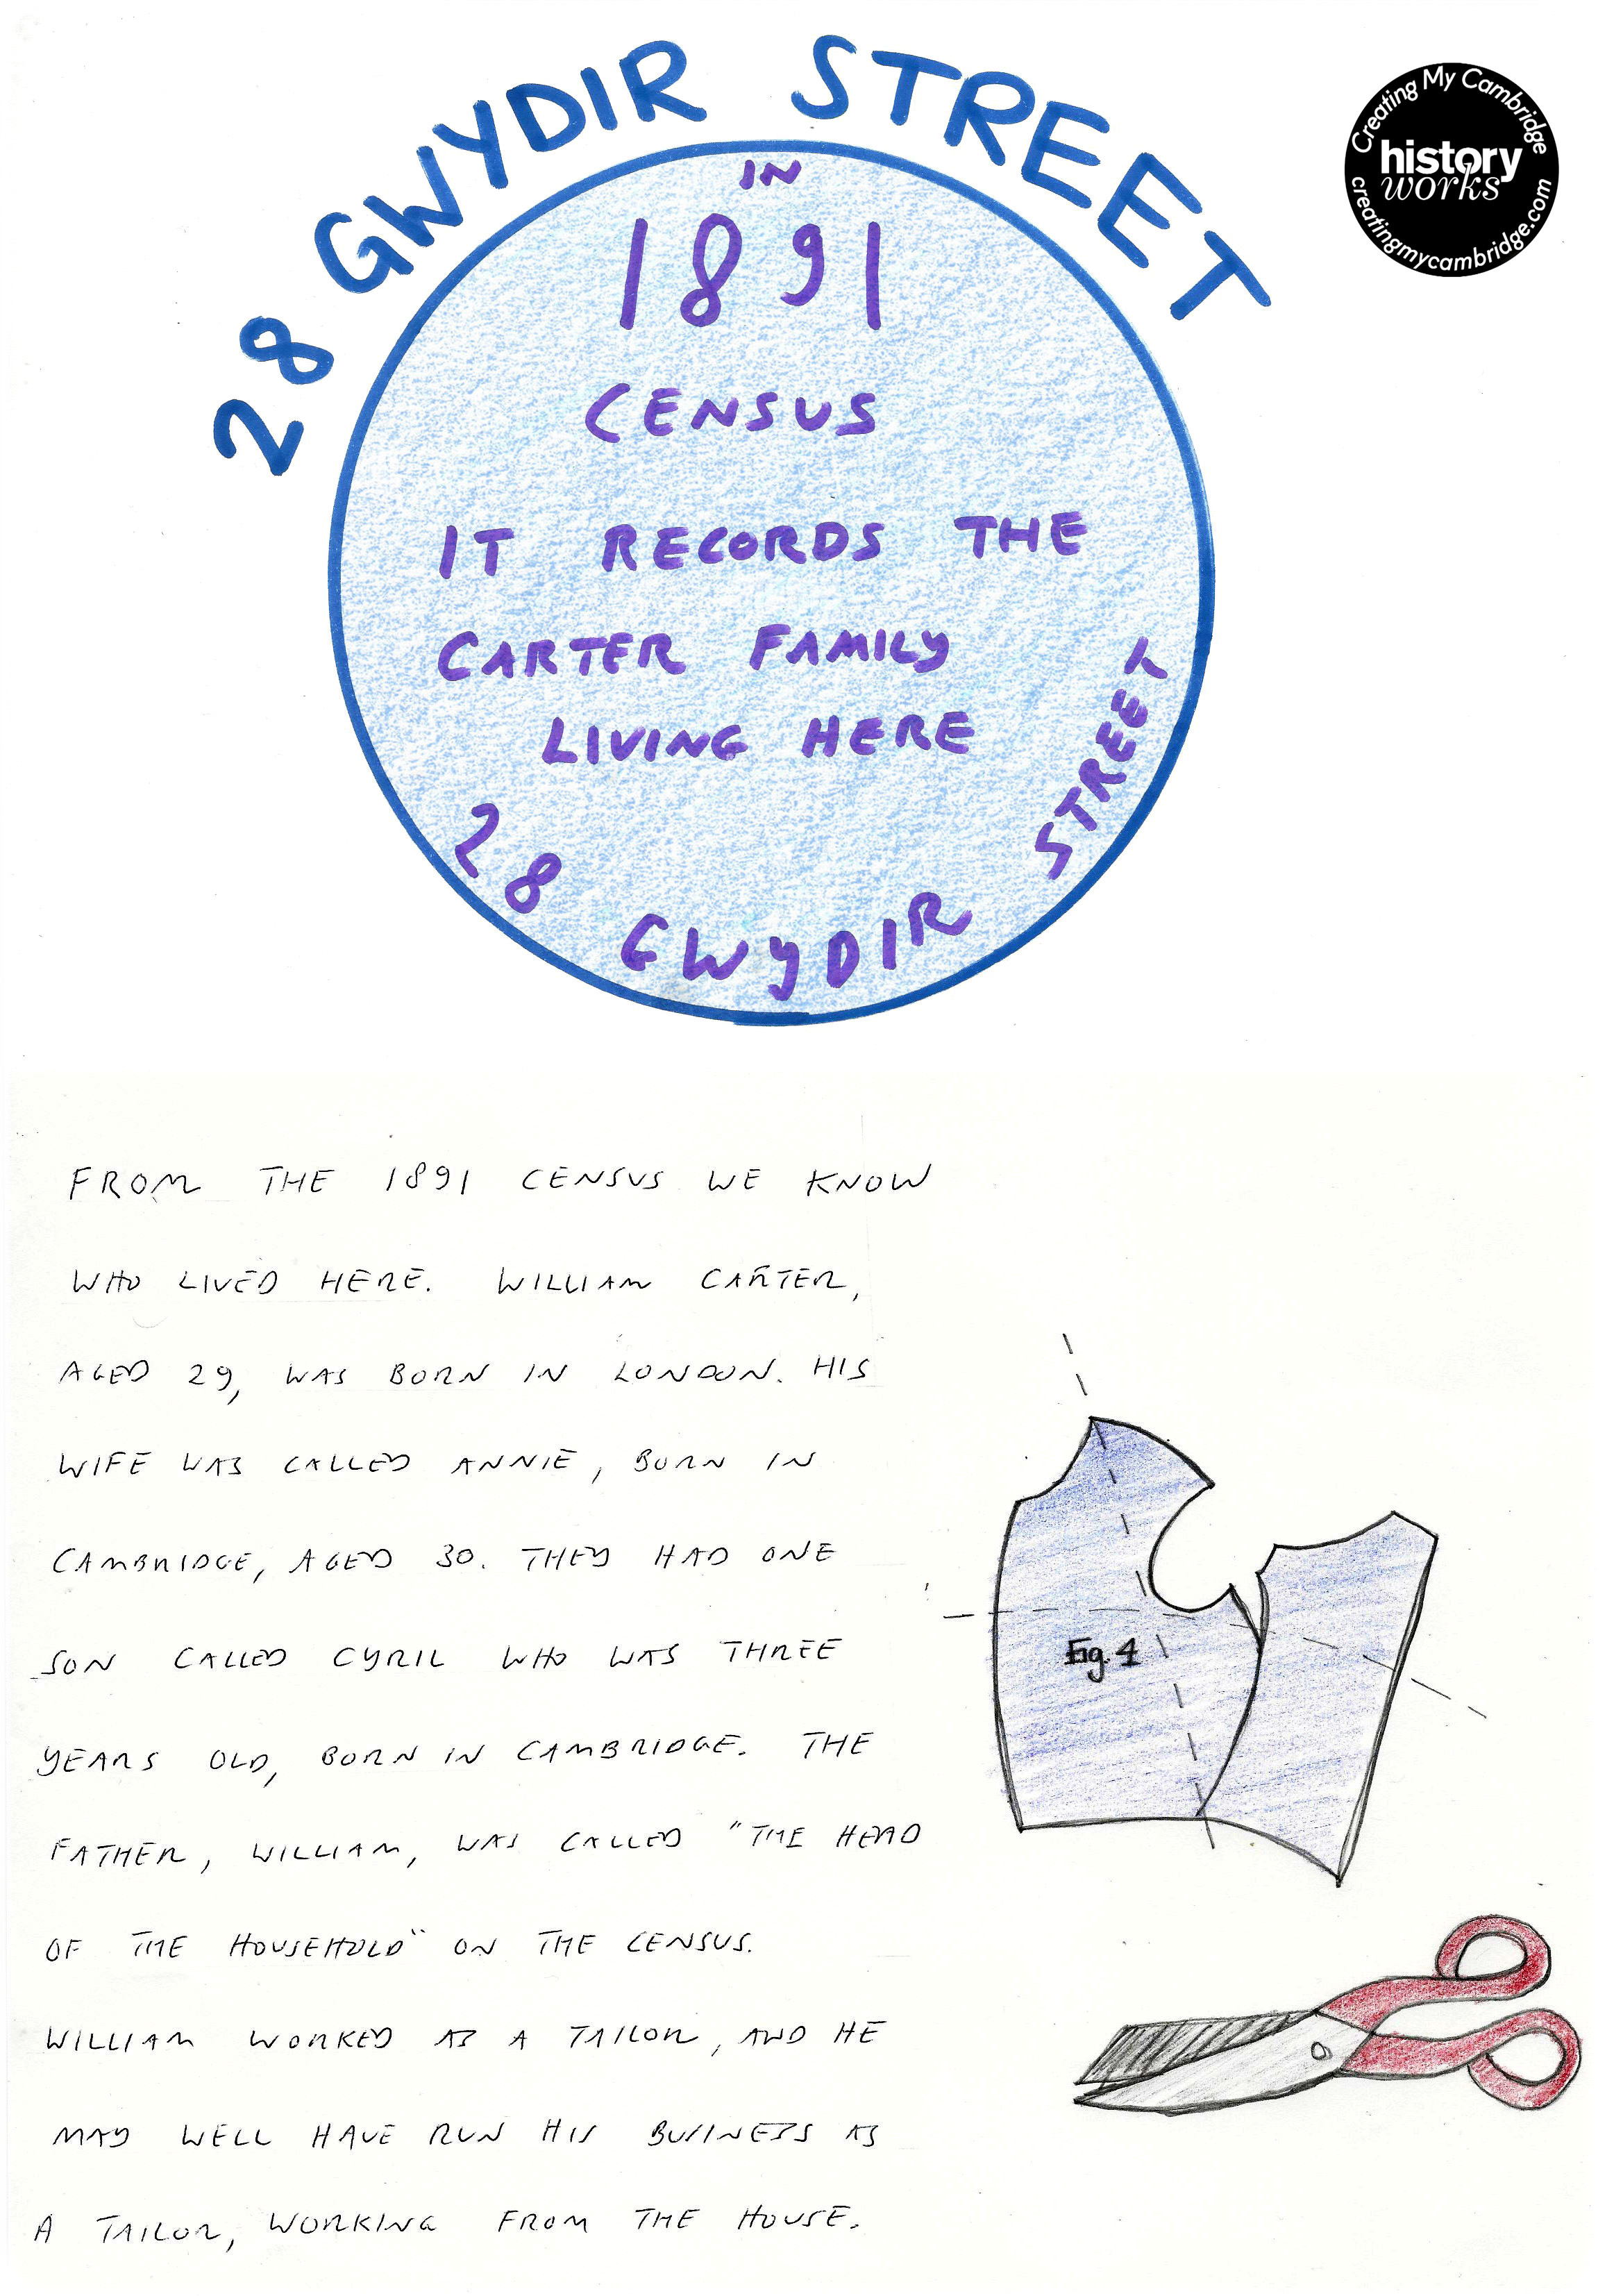 28 GWYDIR STREET
Creating My Cambridge
history
works
creatingmycambridge.com
IN
1891
CENSUS
IT RECORDS THE
CARTER FAMILY
LIVING HERE
28 GWYDIR STREET
FROM THE 1891 CENSUS WE KNOW
WHO LIVED HERE. WILLIAM CARTER,
AGED 29, WAS BORN IN LONDON. HIS
WIFE WAS CALLED ANNIE, BORN IN
CAMBRIDGE, AGED 30. THEY HAD ONE
SON CALLED CYRIL WHO WAS THREE
YEARS OLD, BORN IN CAMBRIDGE. THE
FATHER, WILLIAM, WAS CALLED "THE HEAD
OF THE HOUSEHOLD" ON THE CENSUS.
WILLIAM WORKED AS A TAILOR, AND HE
MAY WELL HAVE RUN HIS BUSINESS AS
A TAILOR, WORKING FROM THE HOUSE.
Fig. 4